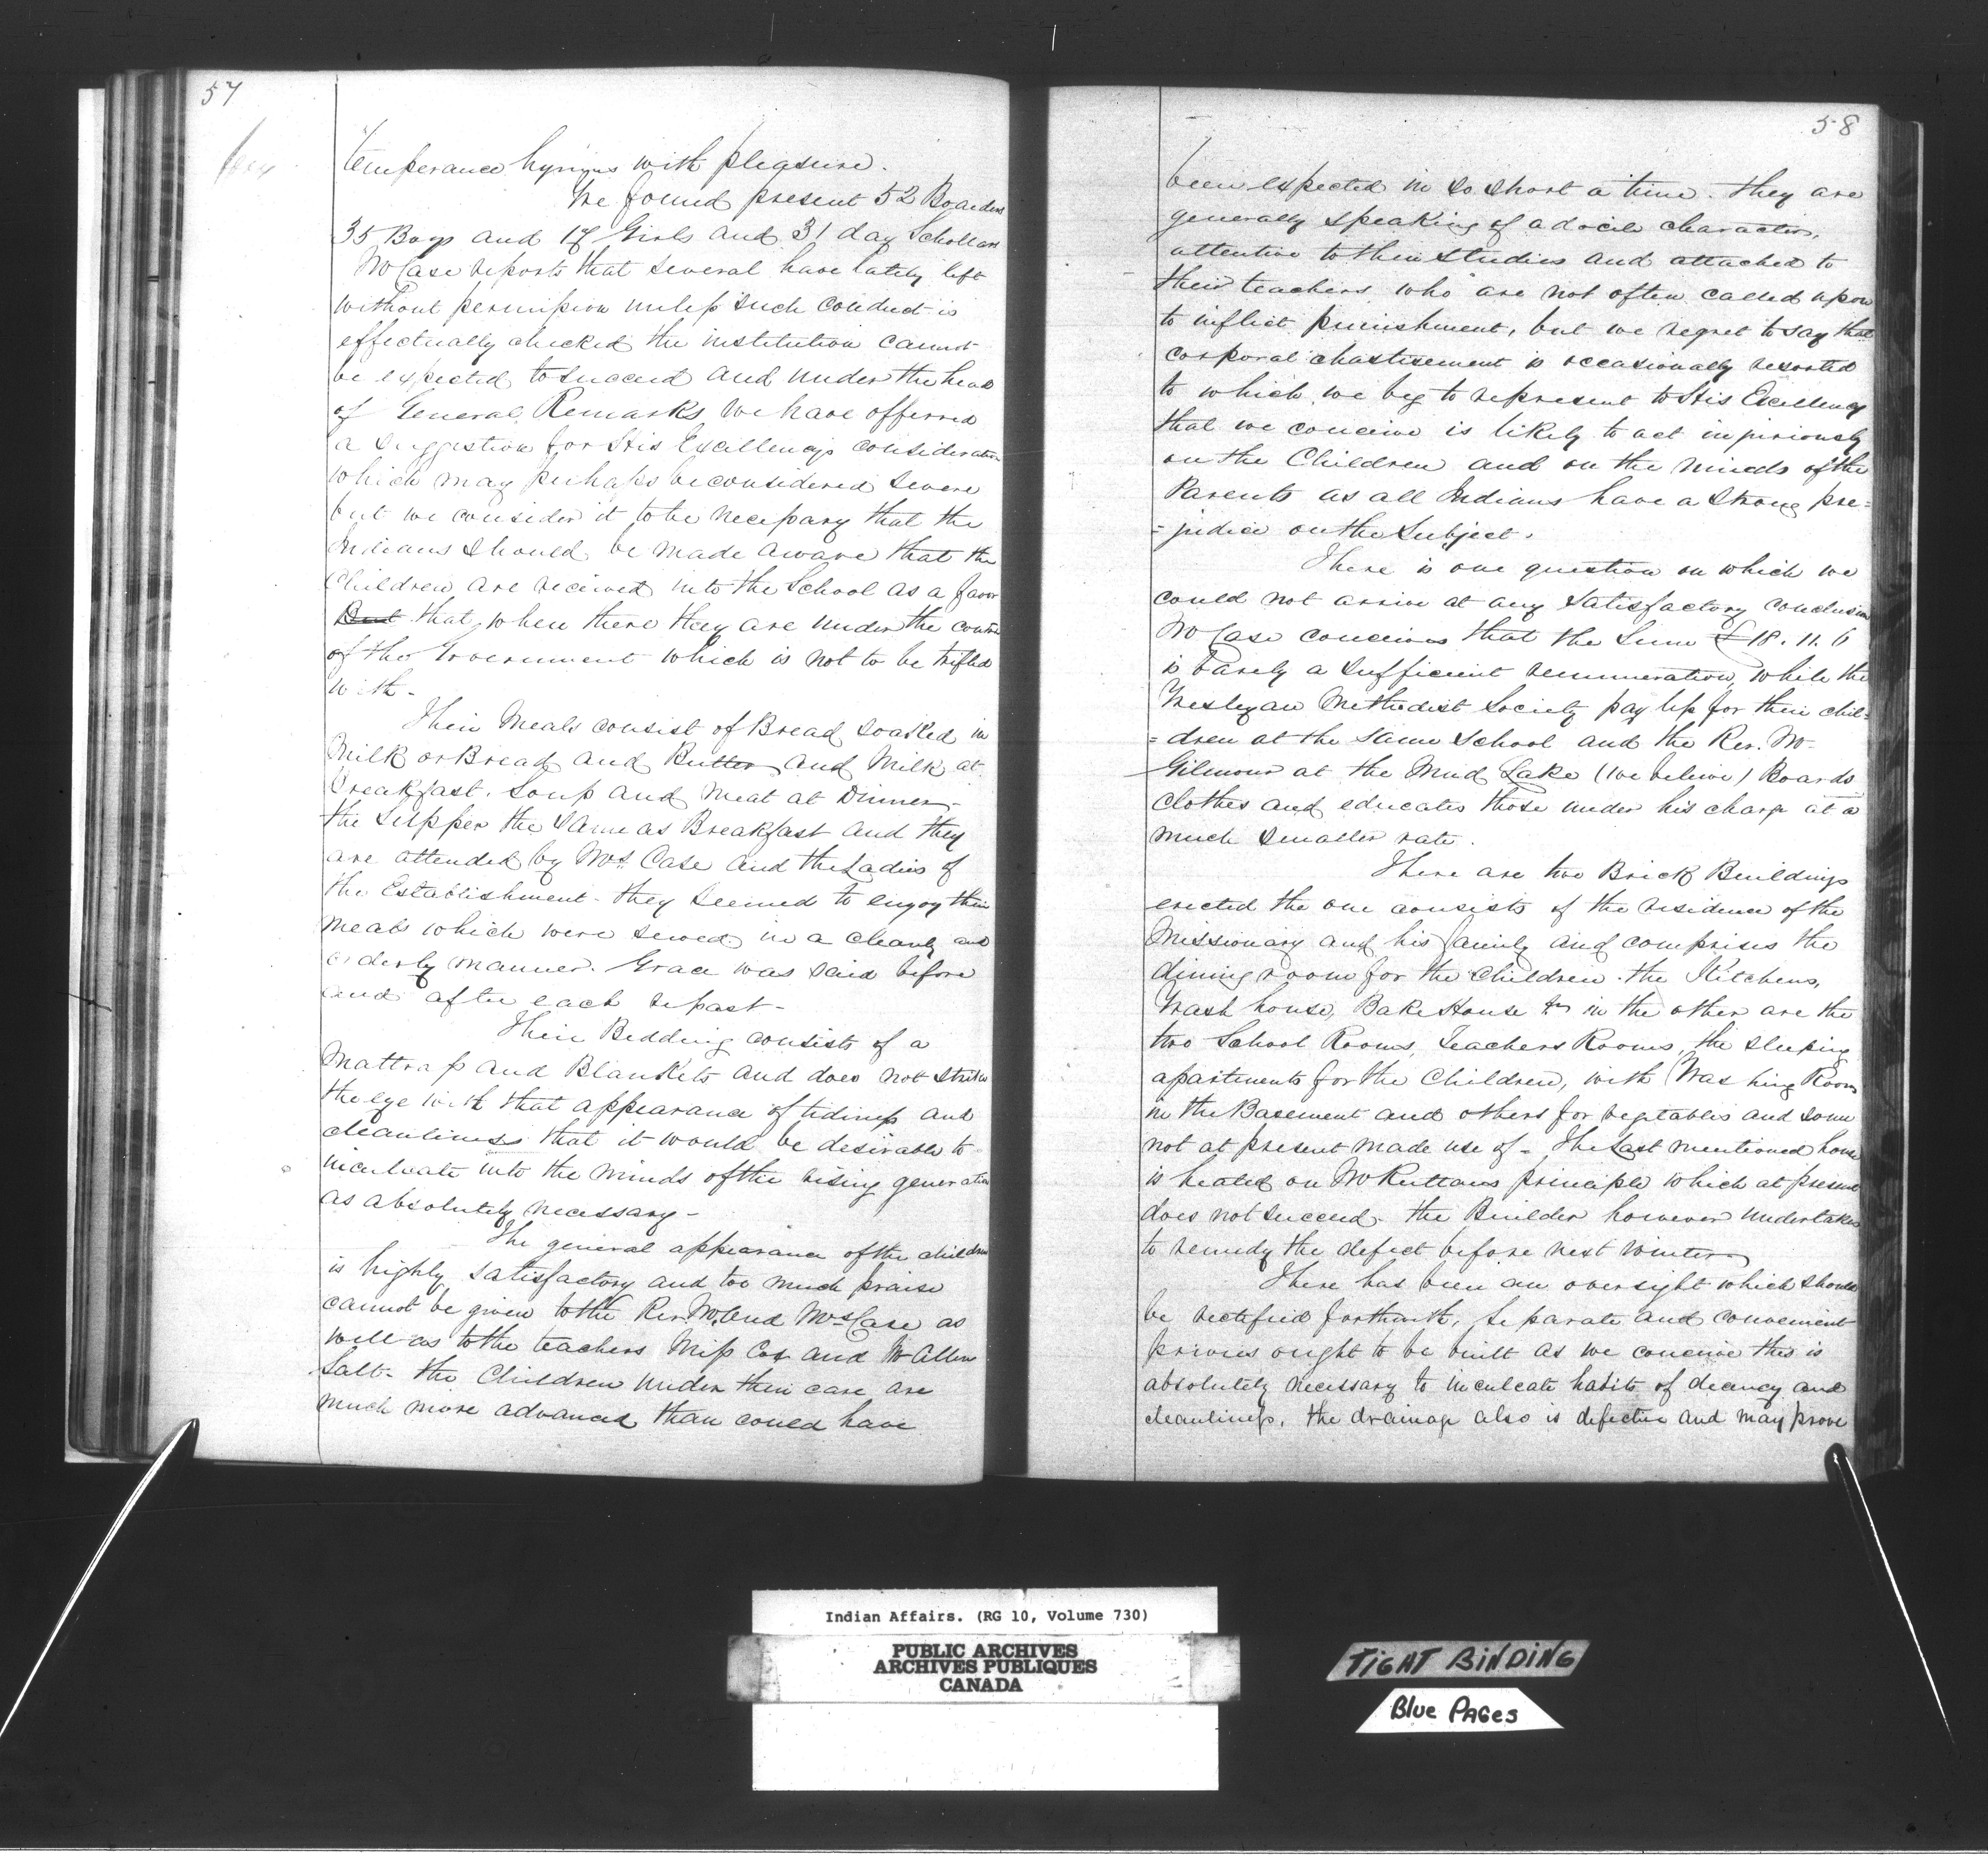 57
temperance hymns with pleasure.
We found present 52 Boarders
35 Boys and 17 Girls and 31 day Schollars
Mr Case reports that several have lately left
without permission unless such conduct is
effectually checked the institution cannot
be expected to succeed and under the head
of General Remarks we have offerred
a suggestion for His Excellency's consideration
which may perhaps be considered severe
but we consider it to be necessary that the
Indians should be made aware that the
Children are received into the School as a favor
But that, when there they are under the control
of the Government which is not to be trifled
with -
Their Meals consist of Bread soaked in
Milk or Bread and Butter and Milk at
breakfast. Soup and Meat at Dinner -
the Supper the same as Breakfast and they
are attended by Mrs Case and the Ladies of
the Establishment - they seemed to enjoy their
meals which were served in a cleanly and
orderly manner. Grace was said before
and after each repast -
Their Bedding consists of a
Mattrass and Blankets and does not strike
the eye with that appearance of tidiness and
cleanliness that it would be desirable to
inculcate into the minds of the rising generation
as absolutely necessary -
The general appearance of the children
is highly satisfactory and too much praise
cannot be given to the Rev. Mr. and Mrs Case as
well as to the teachers Miss Cox and Mr Allen
Salt - the Children under their care are
much more advanced than could have
58
been expected in so short a time. They are
generally speaking of a docile character,
attentive to their studies and attached to
their teachers who are not often called upon
to inflict punishment, but we regret to say that
corporal chastisement is occasionally resorted
to which we beg to represent to His Excellency
that we conceive is likely to act injuriously
on the Children and on the minds of the
Parents as all Indians have a strong pre=
=judice on the Subject.
There is one question on which we
could not arrive at any satisfactory conclusion
Mr Case conceives that the Sum £18.11.6
is barely a sufficient remuneration, while the
Wesleyan Methodist Society pay less for their chil=
=dren at the same School and the Rev. Mr
Gilmour at the Mud Lake (we believe) Boards
clothes and educates those under his charge at a
much smaller rate.
There are two Brick Buildings
erected the one consists of the residence of the
Missionary and his family and comprises the
dining room for the children the Kitchens,
Wash house, Bake House &c in the other are the
two School Rooms, Teachers Rooms, the sleeping
apartments for the Children, with Washing Room
in the Basement and others for vegetables and some
not at present made use of - The Last mentioned house
is heated on Mr Ruttans principle which at present
does not succeed - the Builder however undertakes
to remedy the defect before next winter
There has been an oversight which should
be rectified forthwith, separate and convenient
privies ought to be built as we conceive this is
absolutely necessary to inculcate habits of decency and
cleanliness. the drainage also is defective and may prove
Indian Affairs. (RG 10, Volume 730)
PUBLIC ARCHIVES
ARCHIVES PUBLIQUES
CANADA
TIGHT BINDING
Blue PAGes